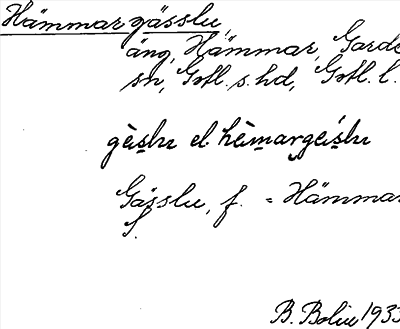 Hämmargässlu,
äng, Hämmar, Garde
sn, Gotl. s. hd, Gotl. l.
gèslu el. hèmargèslu
Gässlu, f. = Hämmar
f.
B. Bolin 1933